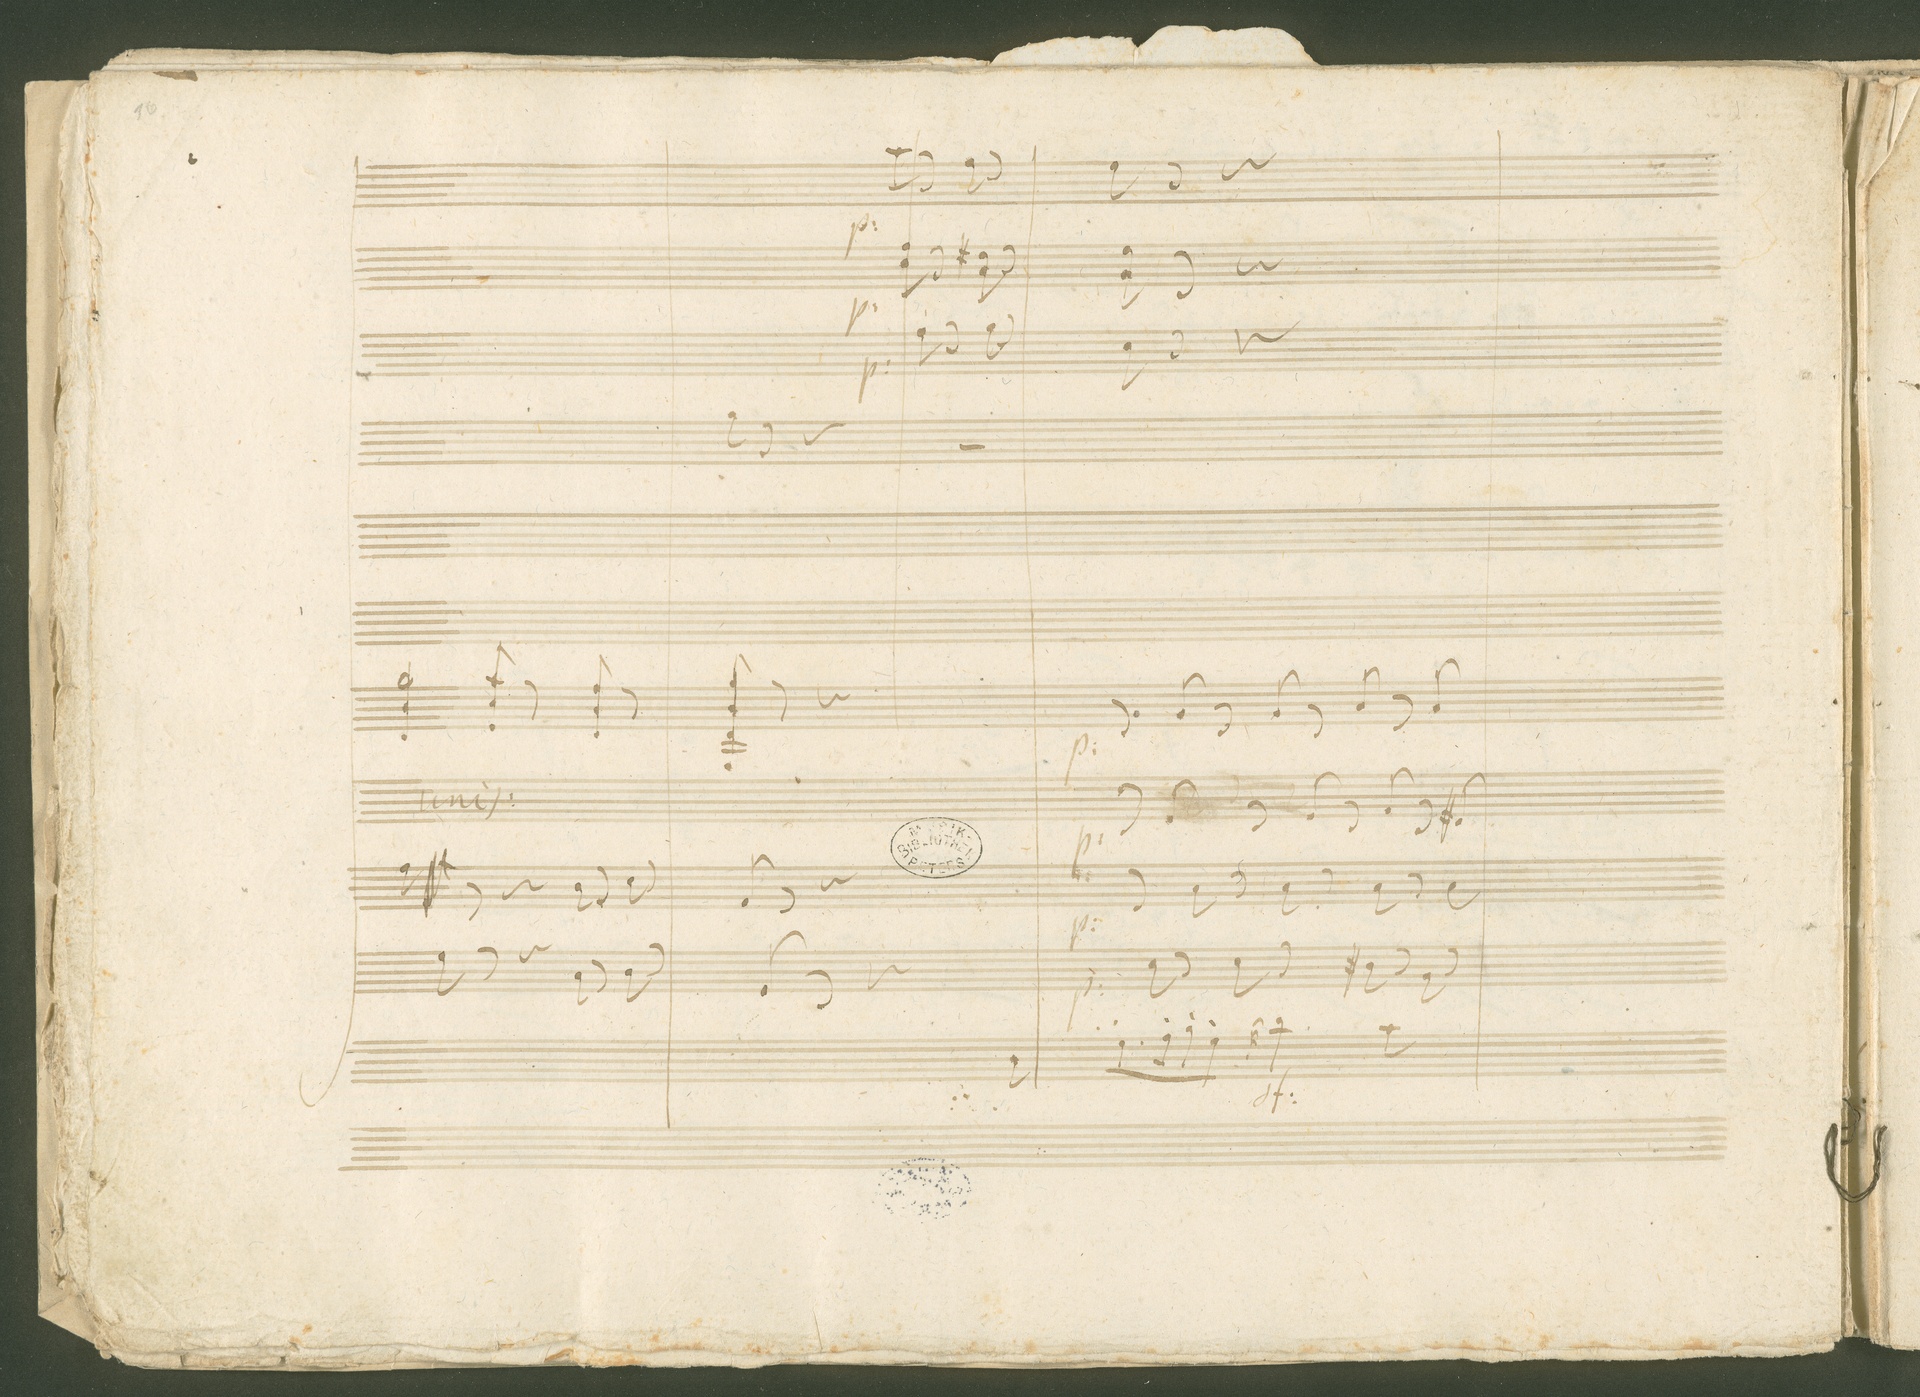 16
p:
p:
p:
p:
unis:
p:
p:
p:
sf:
MUSIK-
BIBLIOTHEK
PETERS